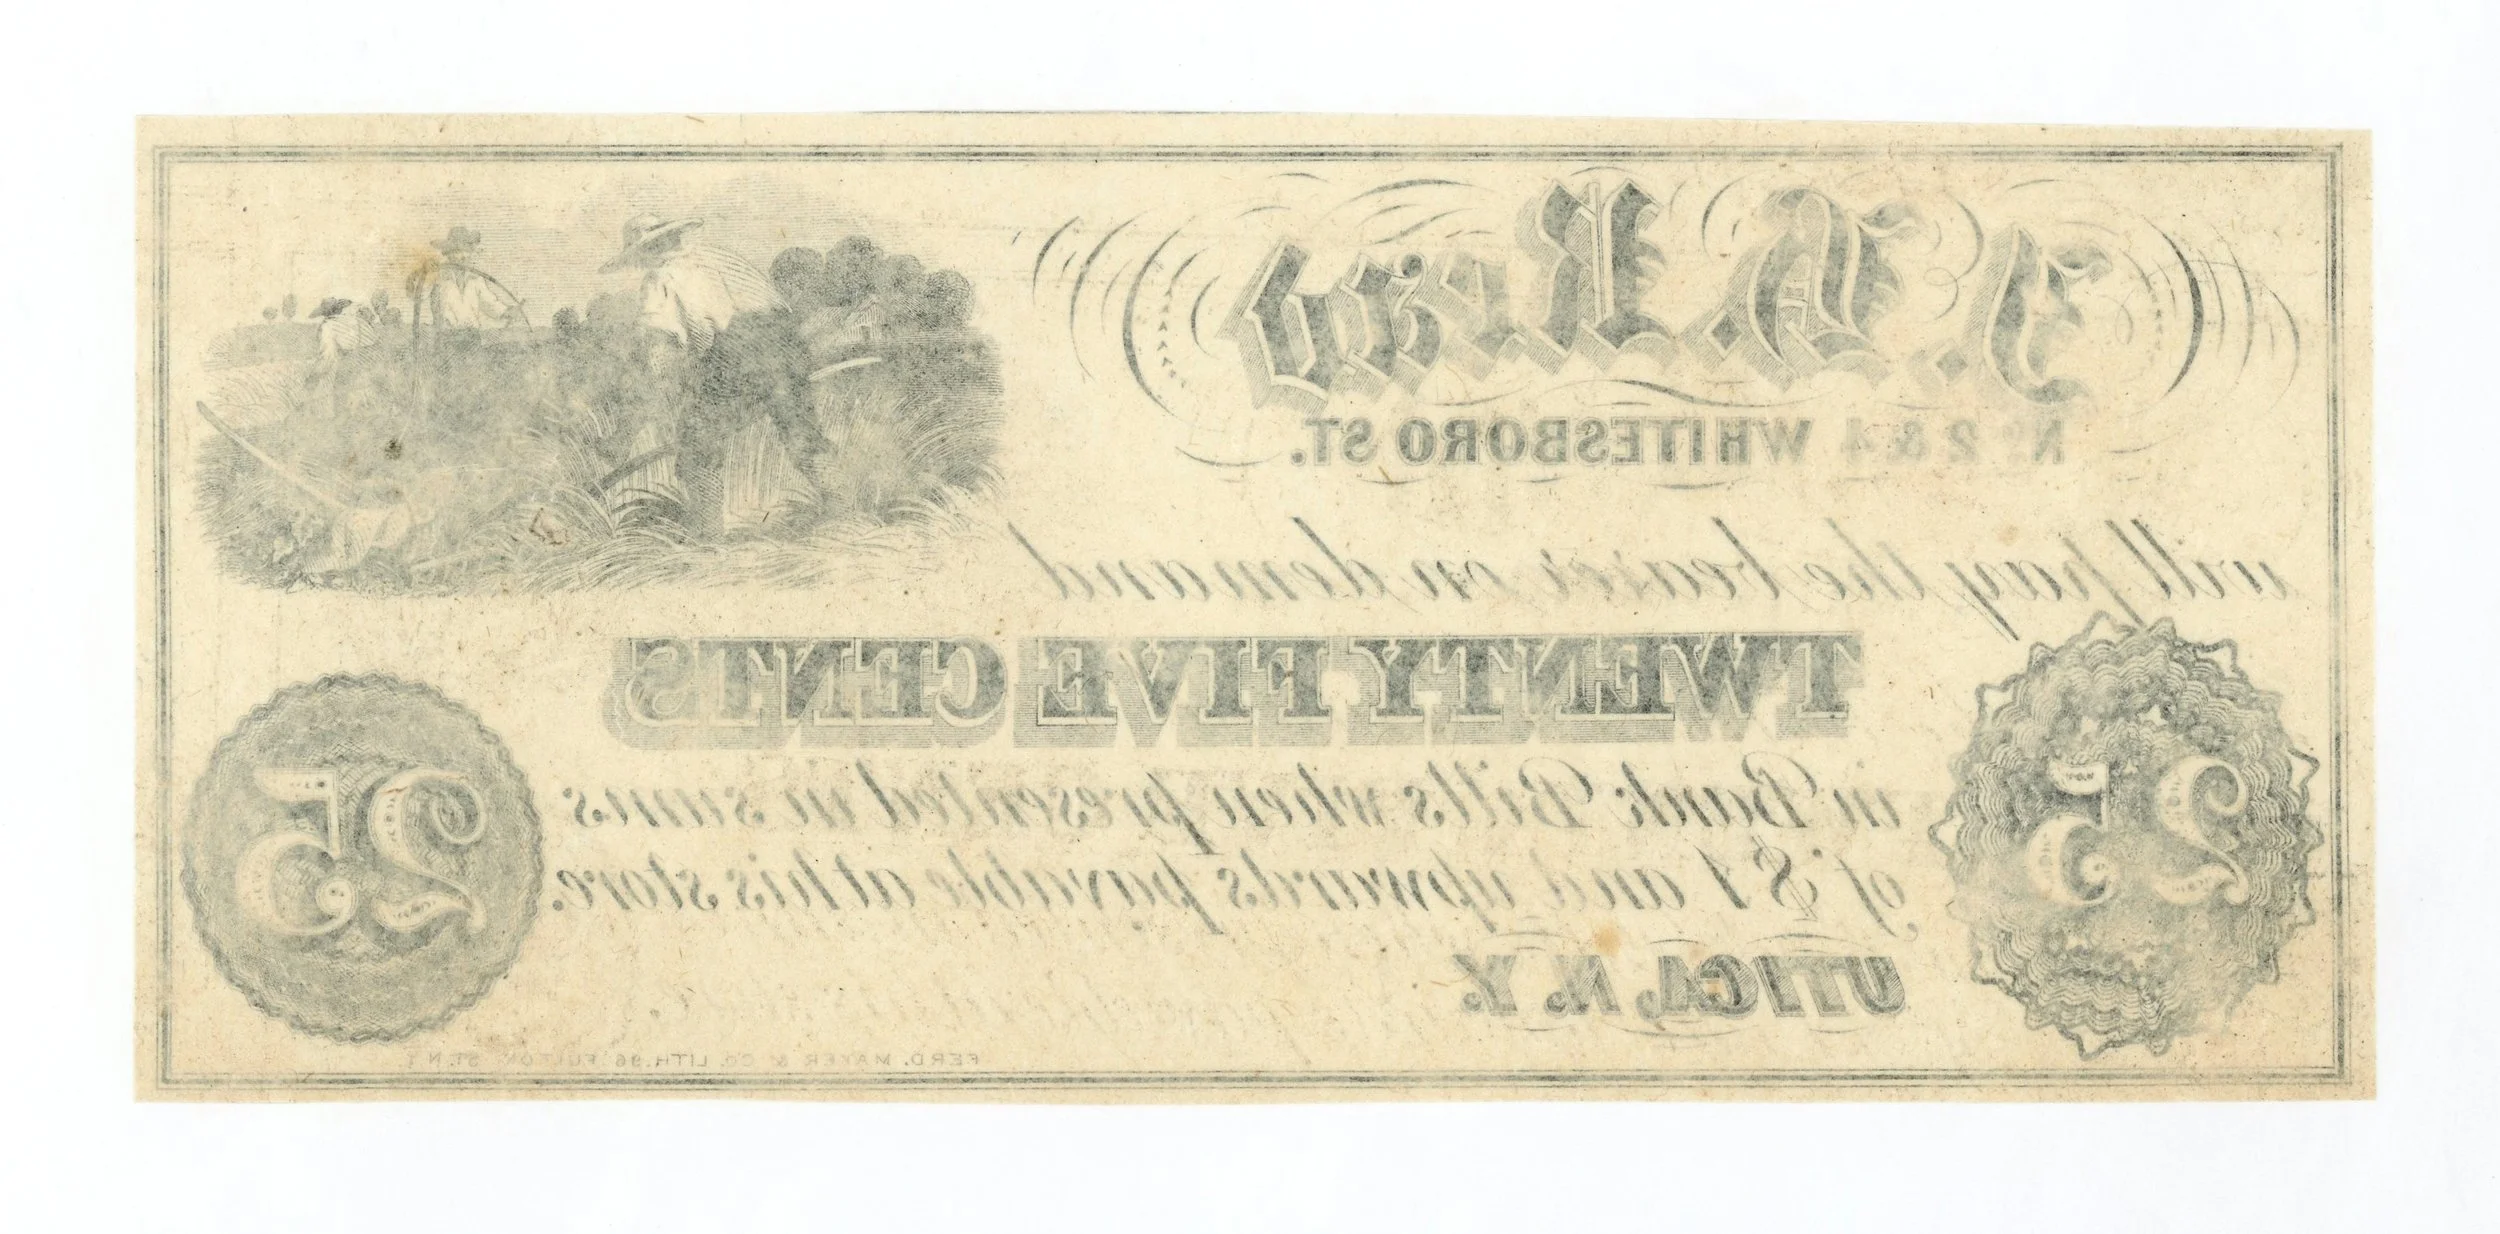 No 2 & 4 WHITESBORO ST.
will pay the bearer on demand
TWENTY FIVE CENTS
in Bank Bills when presented in sums
of $1 and upwards payable at his store.
25
25
UTICA, N. Y.
FERD. MAYER & CO. LITH. 96 FULTON ST. N.Y